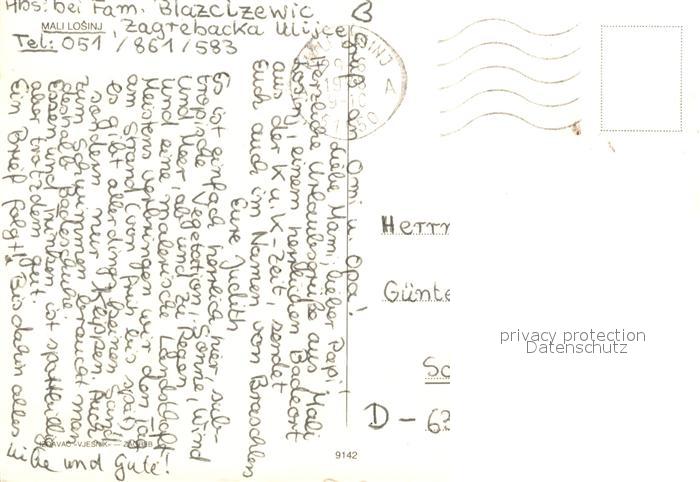 Abs: bei Fam. Blazcizewic
MALI LOŠINJ
, Zagrebacka Ulijce 8
Tel: 051 / 861 / 583
Liebe Omi u. Opa!
Liebe Mami, lieber Papi,
Herzliche Urlaubsgrüße aus Mali
Losinj, einem herrlichen Badeort
aus der K u. K-Zeit, sendet
Euch auch im Namen von
Eure Judith
Es ist einfach herrlich hier, sub-
tropische Vegetation, Sonne, Wind
und Meer, ab und zu Regen,
und eine malerische Landschaft.
Meistens verbringen wir den Tag
am Strand (von früh bis spät),
es gibt allerdings keinen Sand,
sondern nur Klippen. Auch
zum Schwimmen braucht man
deshalb Badeschuhe.
Essen und Trinken ist spottbillig
aber trotzdem gut.
Ein Brief folgt! Bis dahin alles
Liebe und Gute!
Herrn
Günte
Sc
D - 63
privacy protection
Datenschutz
IZDAVAČ »VJESNIK« — ZAGREB
9142